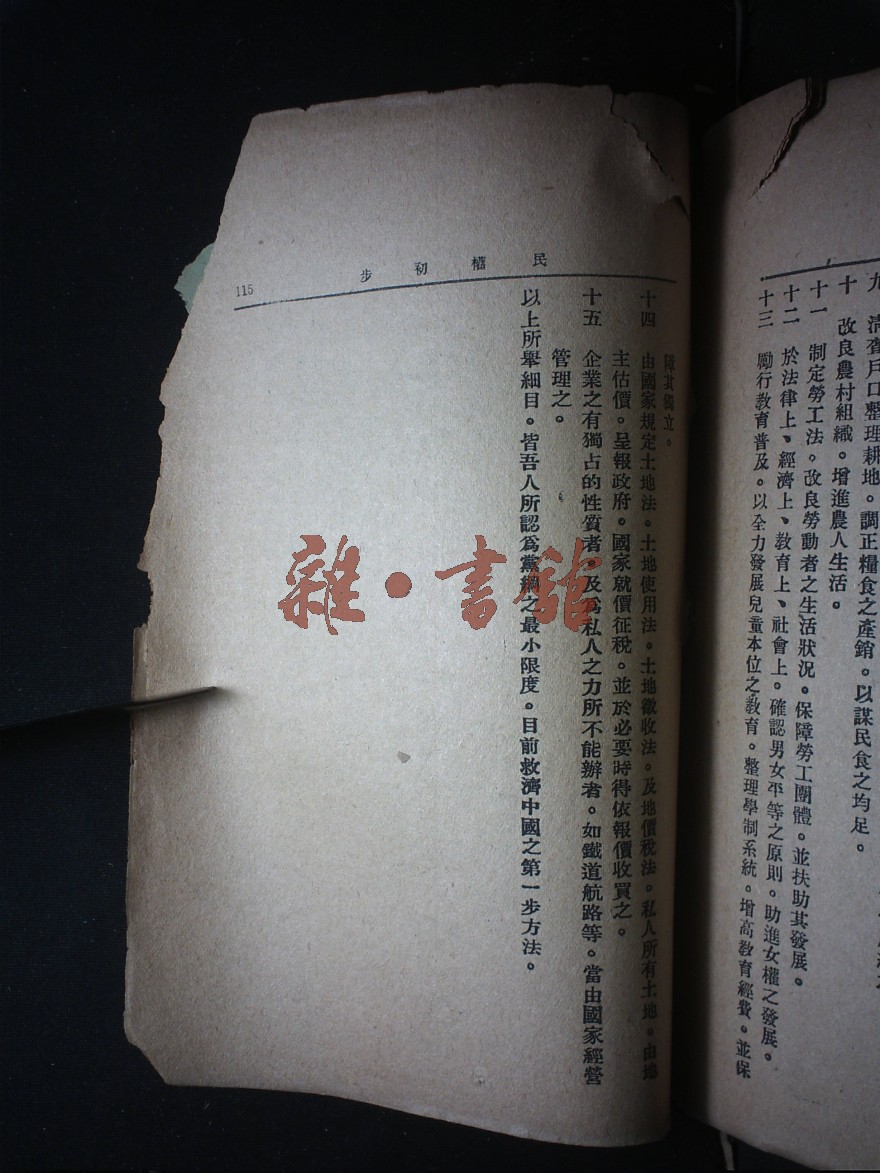 九　清查戶口整理耕地。調正糧食之產銷。以謀民食之均足。
十　改良農村組織。增進農人生活。
十一　制定勞工法。改良勞動者之生活狀況。保障勞工團體。並扶助其發展。
十二　於法律上、經濟上、教育上、社會上。確認男女平等之原則。助進女權之發展。
十三　勵行教育普及。以全力發展兒童本位之教育。整理學制系統。增高教育經費。並保
民權初步
115
障其獨立。
十四　由國家規定土地法。土地使用法。土地徵收法。及地價稅法。私人所有土地。由地
主估價。呈報政府。國家就價征稅。並於必要時得依報價收買之。
十五　企業之有獨占的性質者。及爲私人之力所不能辦者。如鐵道航路等。當由國家經營
管理之。
以上所舉細目。皆吾人所認爲黨綱之最小限度。目前救濟中國之第一步方法。
雜·書館